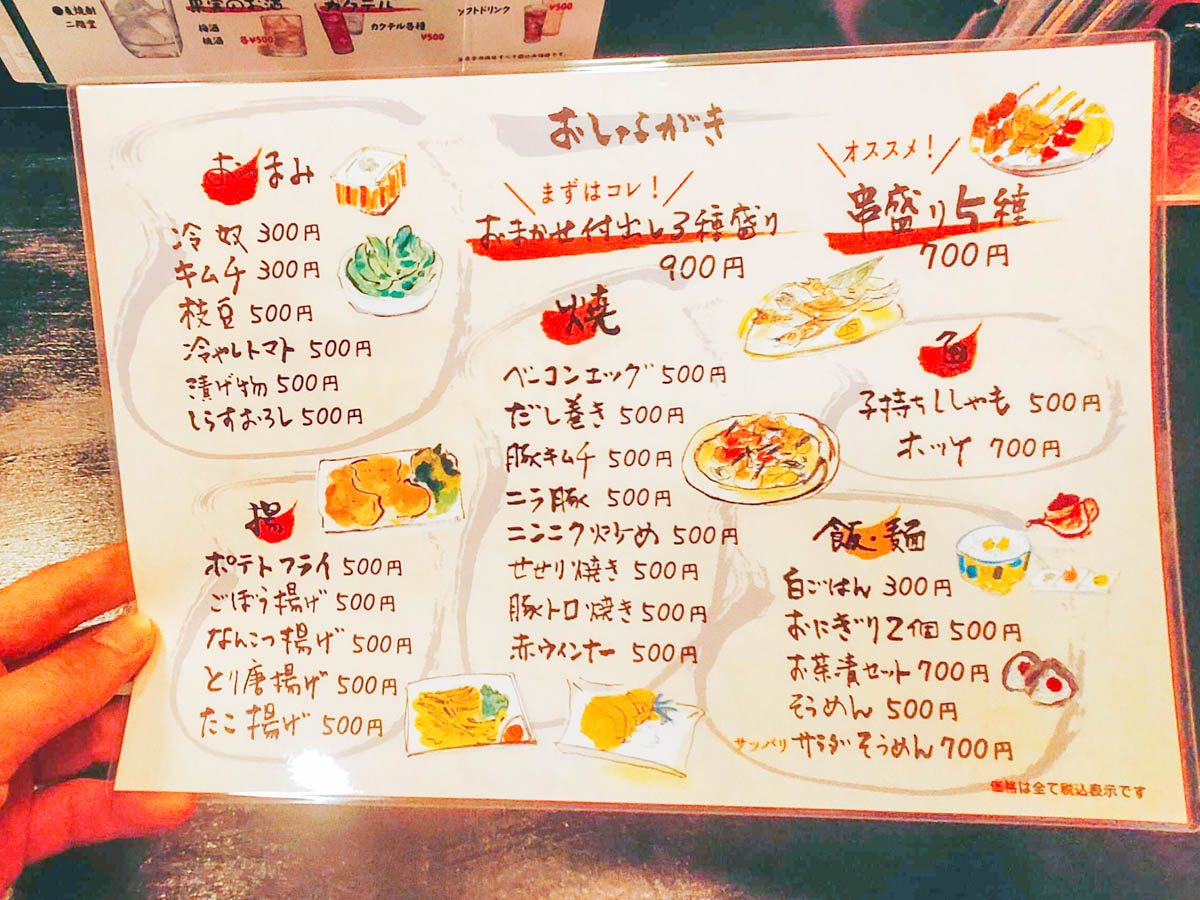 ●麦焼酎
二階堂
果実のお酒
梅酒
桃酒 各¥500
カクテル
カクテル各種
¥500
ソフトドリンク
¥500
おしながき
おつまみ
冷奴 300円
キムチ 300円
枝豆 500円
冷やしトマト 500円
漬け物 500円
しらすおろし 500円
まずはコレ!
おまかせ付出し3種盛り
900円
オススメ!
串盛り5種
700円
焼
ベーコンエッグ 500円
だし巻き 500円
豚キムチ 500円
ニラ豚 500円
ニンニク炒め 500円
せせり焼き 500円
豚トロ焼き 500円
赤ウィンナー 500円
魚
子持ちししゃも 500円
ホッケ 700円
揚
ポテトフライ 500円
ごぼう揚げ 500円
なんこつ揚げ 500円
とり唐揚げ 500円
たこ揚げ 500円
飯・麺
白ごはん 300円
おにぎり2個 500円
お茶漬セット 700円
そうめん 500円
サッパリ サラダそうめん 700円
価格は全て税込表示です